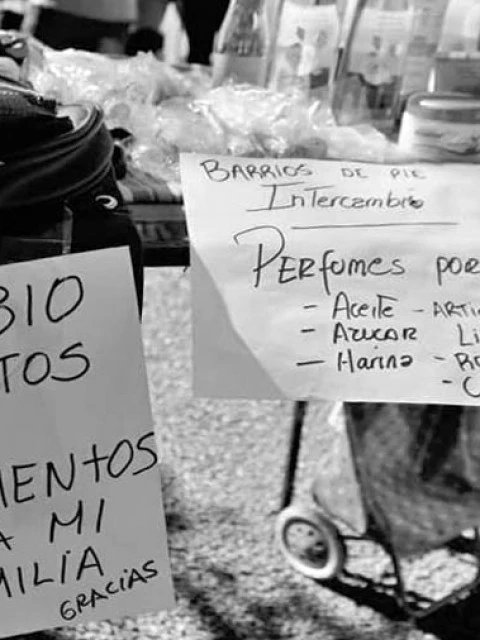 BARRIOS DE PIE
Intercambio
PERfumes por
- Aceite - ARTi
- AZUCAR Li
- Harina - Ro
- C
BIO
TOS
MENtOS
A MI
MILIA
GRACIAS